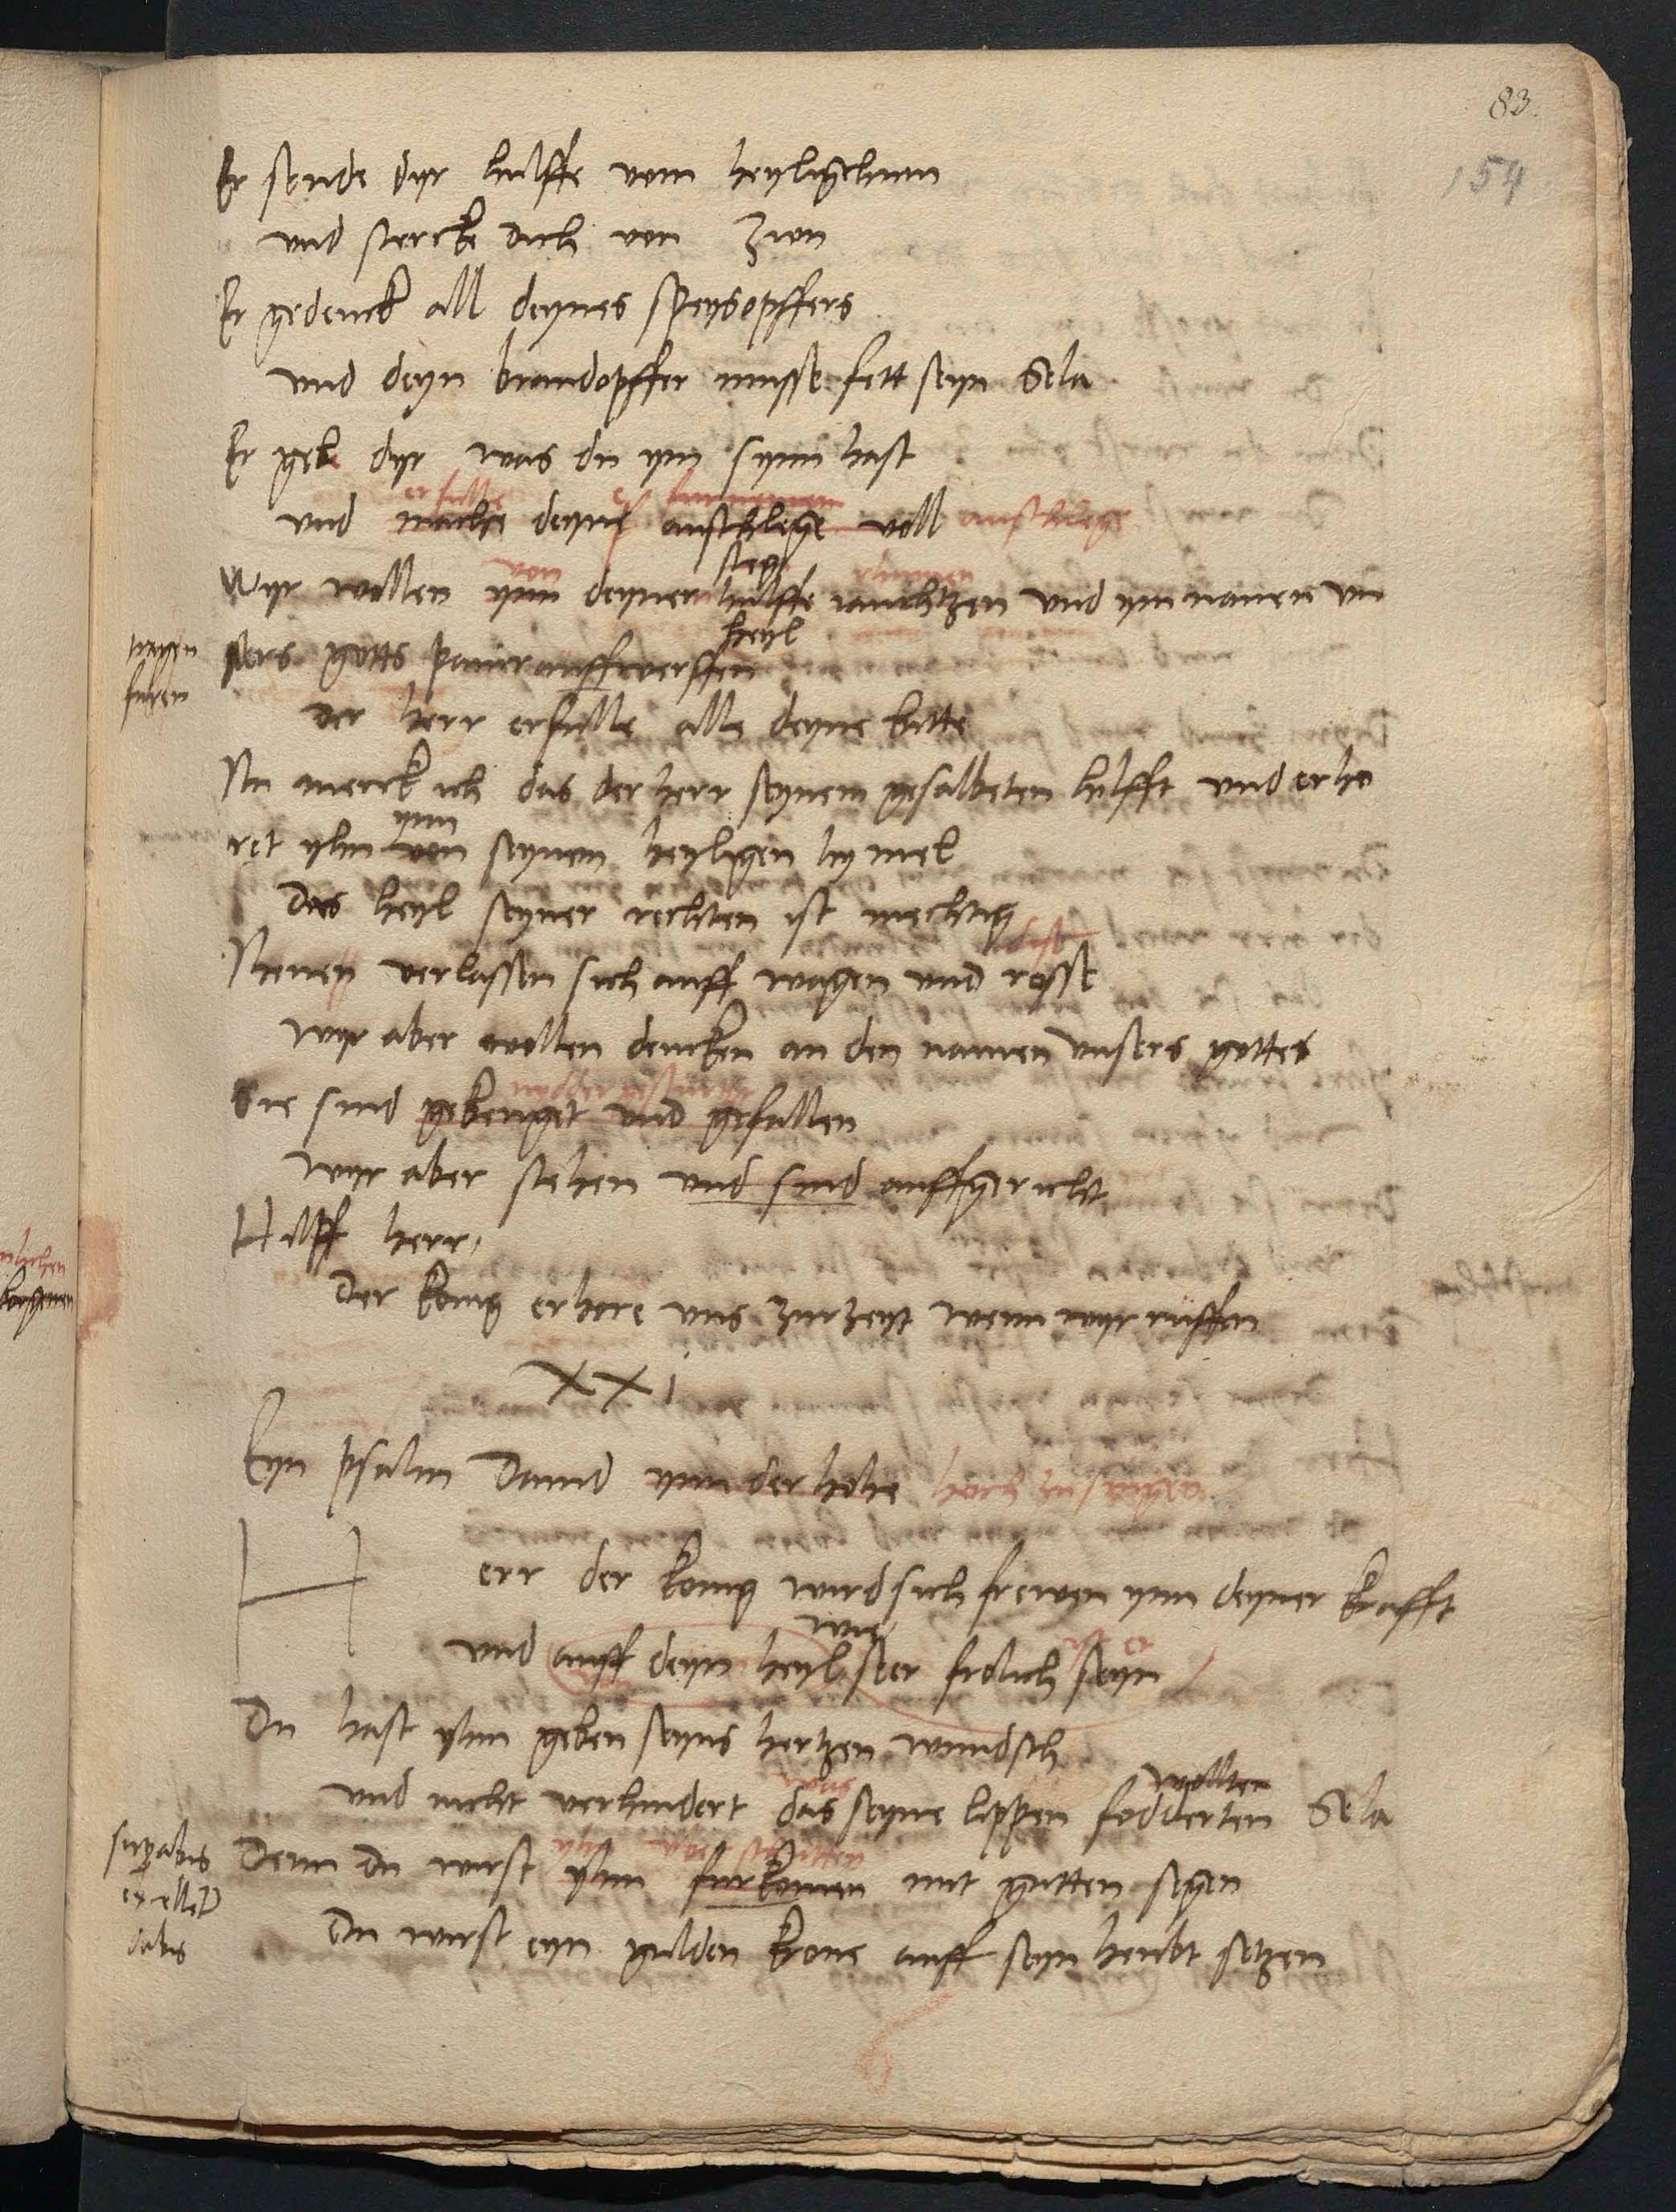 83.
154
Er sende dyr hulffe vom heyligthum
und stercke dich von Zion
Er gedenck all deynes speysopffers
und deyn brandopffer musse fett seyn Sela
Er gebe dyr was du ym synn hast
und mache deyne anschlege voll
sieg
Wyr wollen ynn deyner hulffe rauchtzen und ym namen un
heyl
tragen
furen
sers gotts panir auffwerffen
der herr erfulle alle deyne bitte
Nu merck ich das der herr seynem gesalbeten hilfft und erho
ynn
ret yhn von seynem heyligen hymel
Das heyl seyner rechten ist mechtig
Ihenen verlassen sich auff wagen und rosse
wyr aber wollen dencken an den namen unsers gottes
Sie sind gebeuget und gefallen
Wyr aber stehen und sind auffgericht
Hilff herr,
Der konig erhore uns zur zeyt wenn wyr ruffen
XXi
Eyn psalm David ynn der hohe hoch zu singen
Herr der konig wird sich frewen ynn deyner krafft
wie
und auff deyn heyl seer frolich seyn
Du hast yhm geben seyns hertzen wundsch
wollten
und nicht verhindert das seyne lippen fodderten Sela
Denn du wirst yhm furkomen mit gutten segen
dabis
Du wirst eyn gulden krone auff seyn heubt setzen